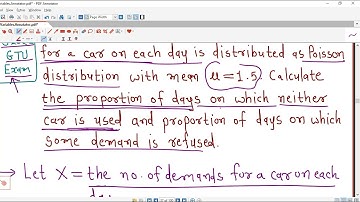 for a car on each day is distributed as Poisson
GTU
Exam
distribution with mean μ=1.5. Calculate
the proportion of days on which neither
car is used and proportion of days on which
some demand is refused.
→ Let X = the no. of demands for a car on each